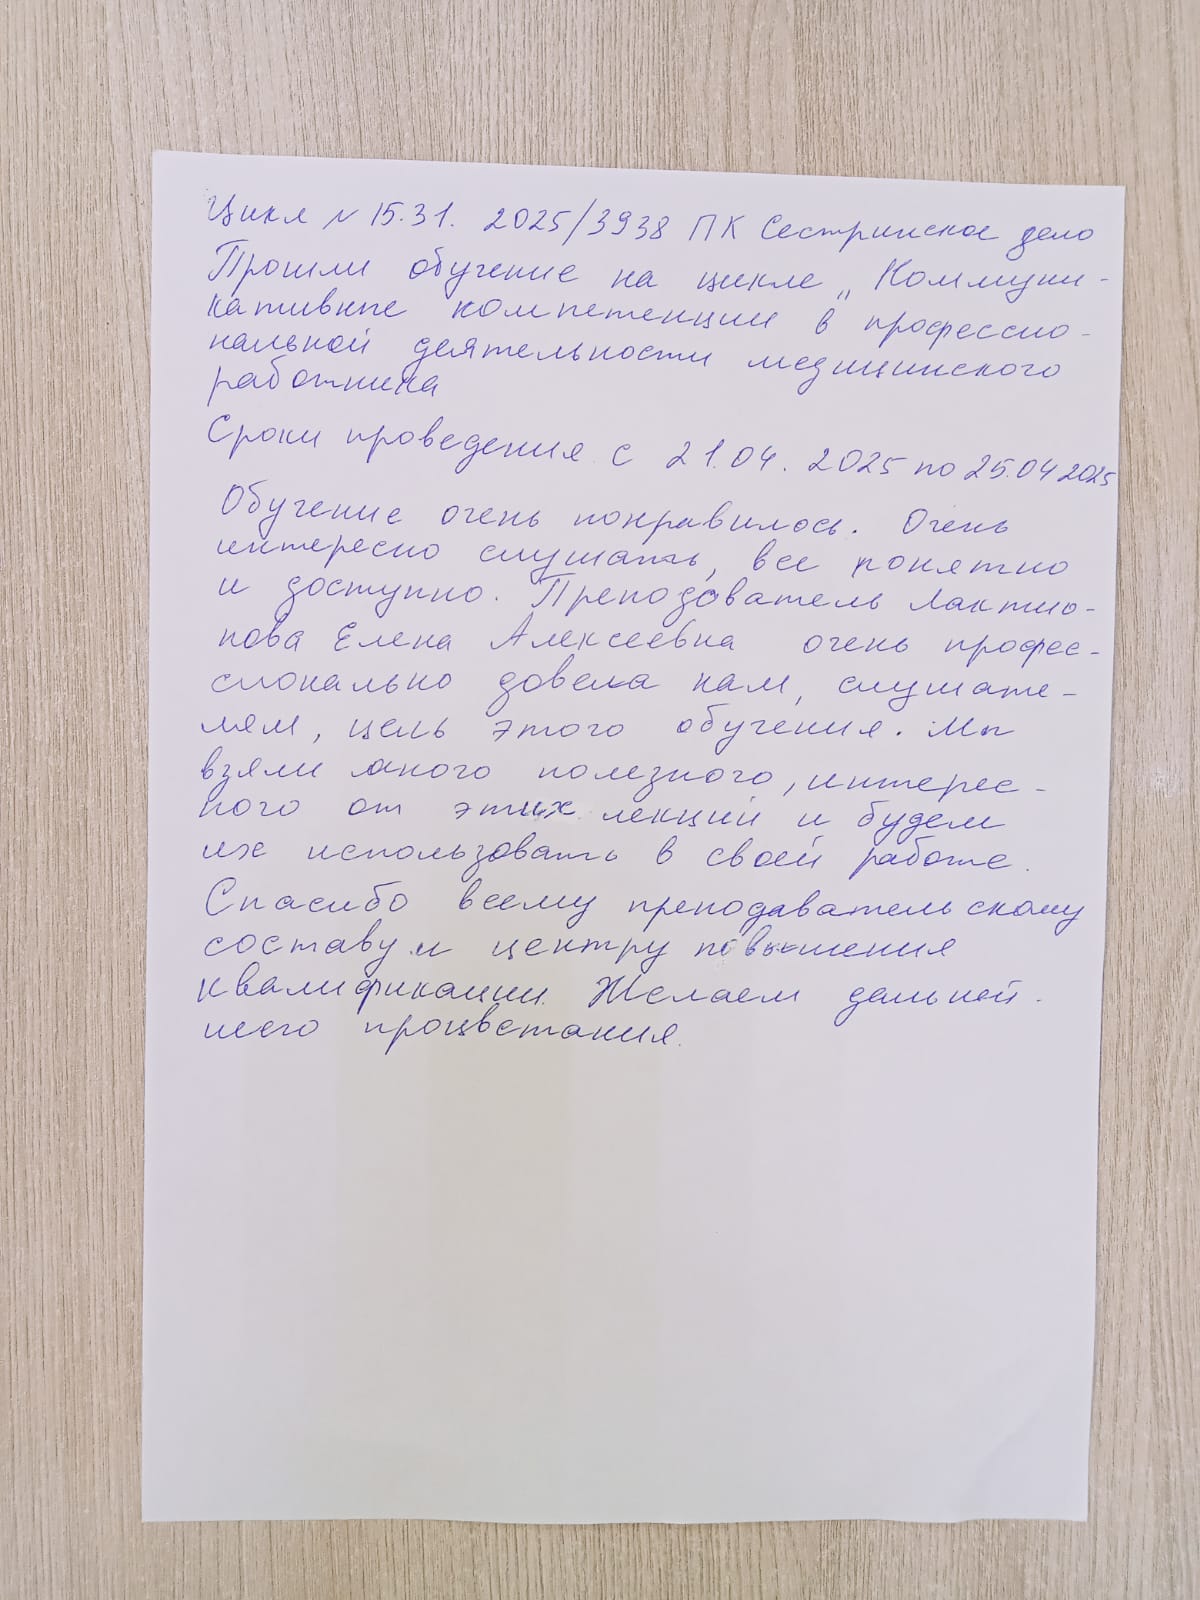 Цикл N 15.31. 2025/3938 ПК Сестринское дело
Прошли обучение на цикле „Коммуни-
кативные компетенции в профессио-
нальной деятельности медицинского
работника
Сроки проведения с 21.04. 2025 по 25.04 2025
Обучение очень понравилось. Очень
интересно слушать, все понятно
и доступно. Преподователь Лактио-
нова Елена Алексеевна очень профес-
сионально довела нам, слушате-
лям, цель этого обучения. Мы
взяли много полезного, интерес-
ного от этих лекций и будем
их использовать в своей работе.
Спасибо всему преподавательскому
составу и центру повышения
квалификации. Желаем дальней-
шего процветания.